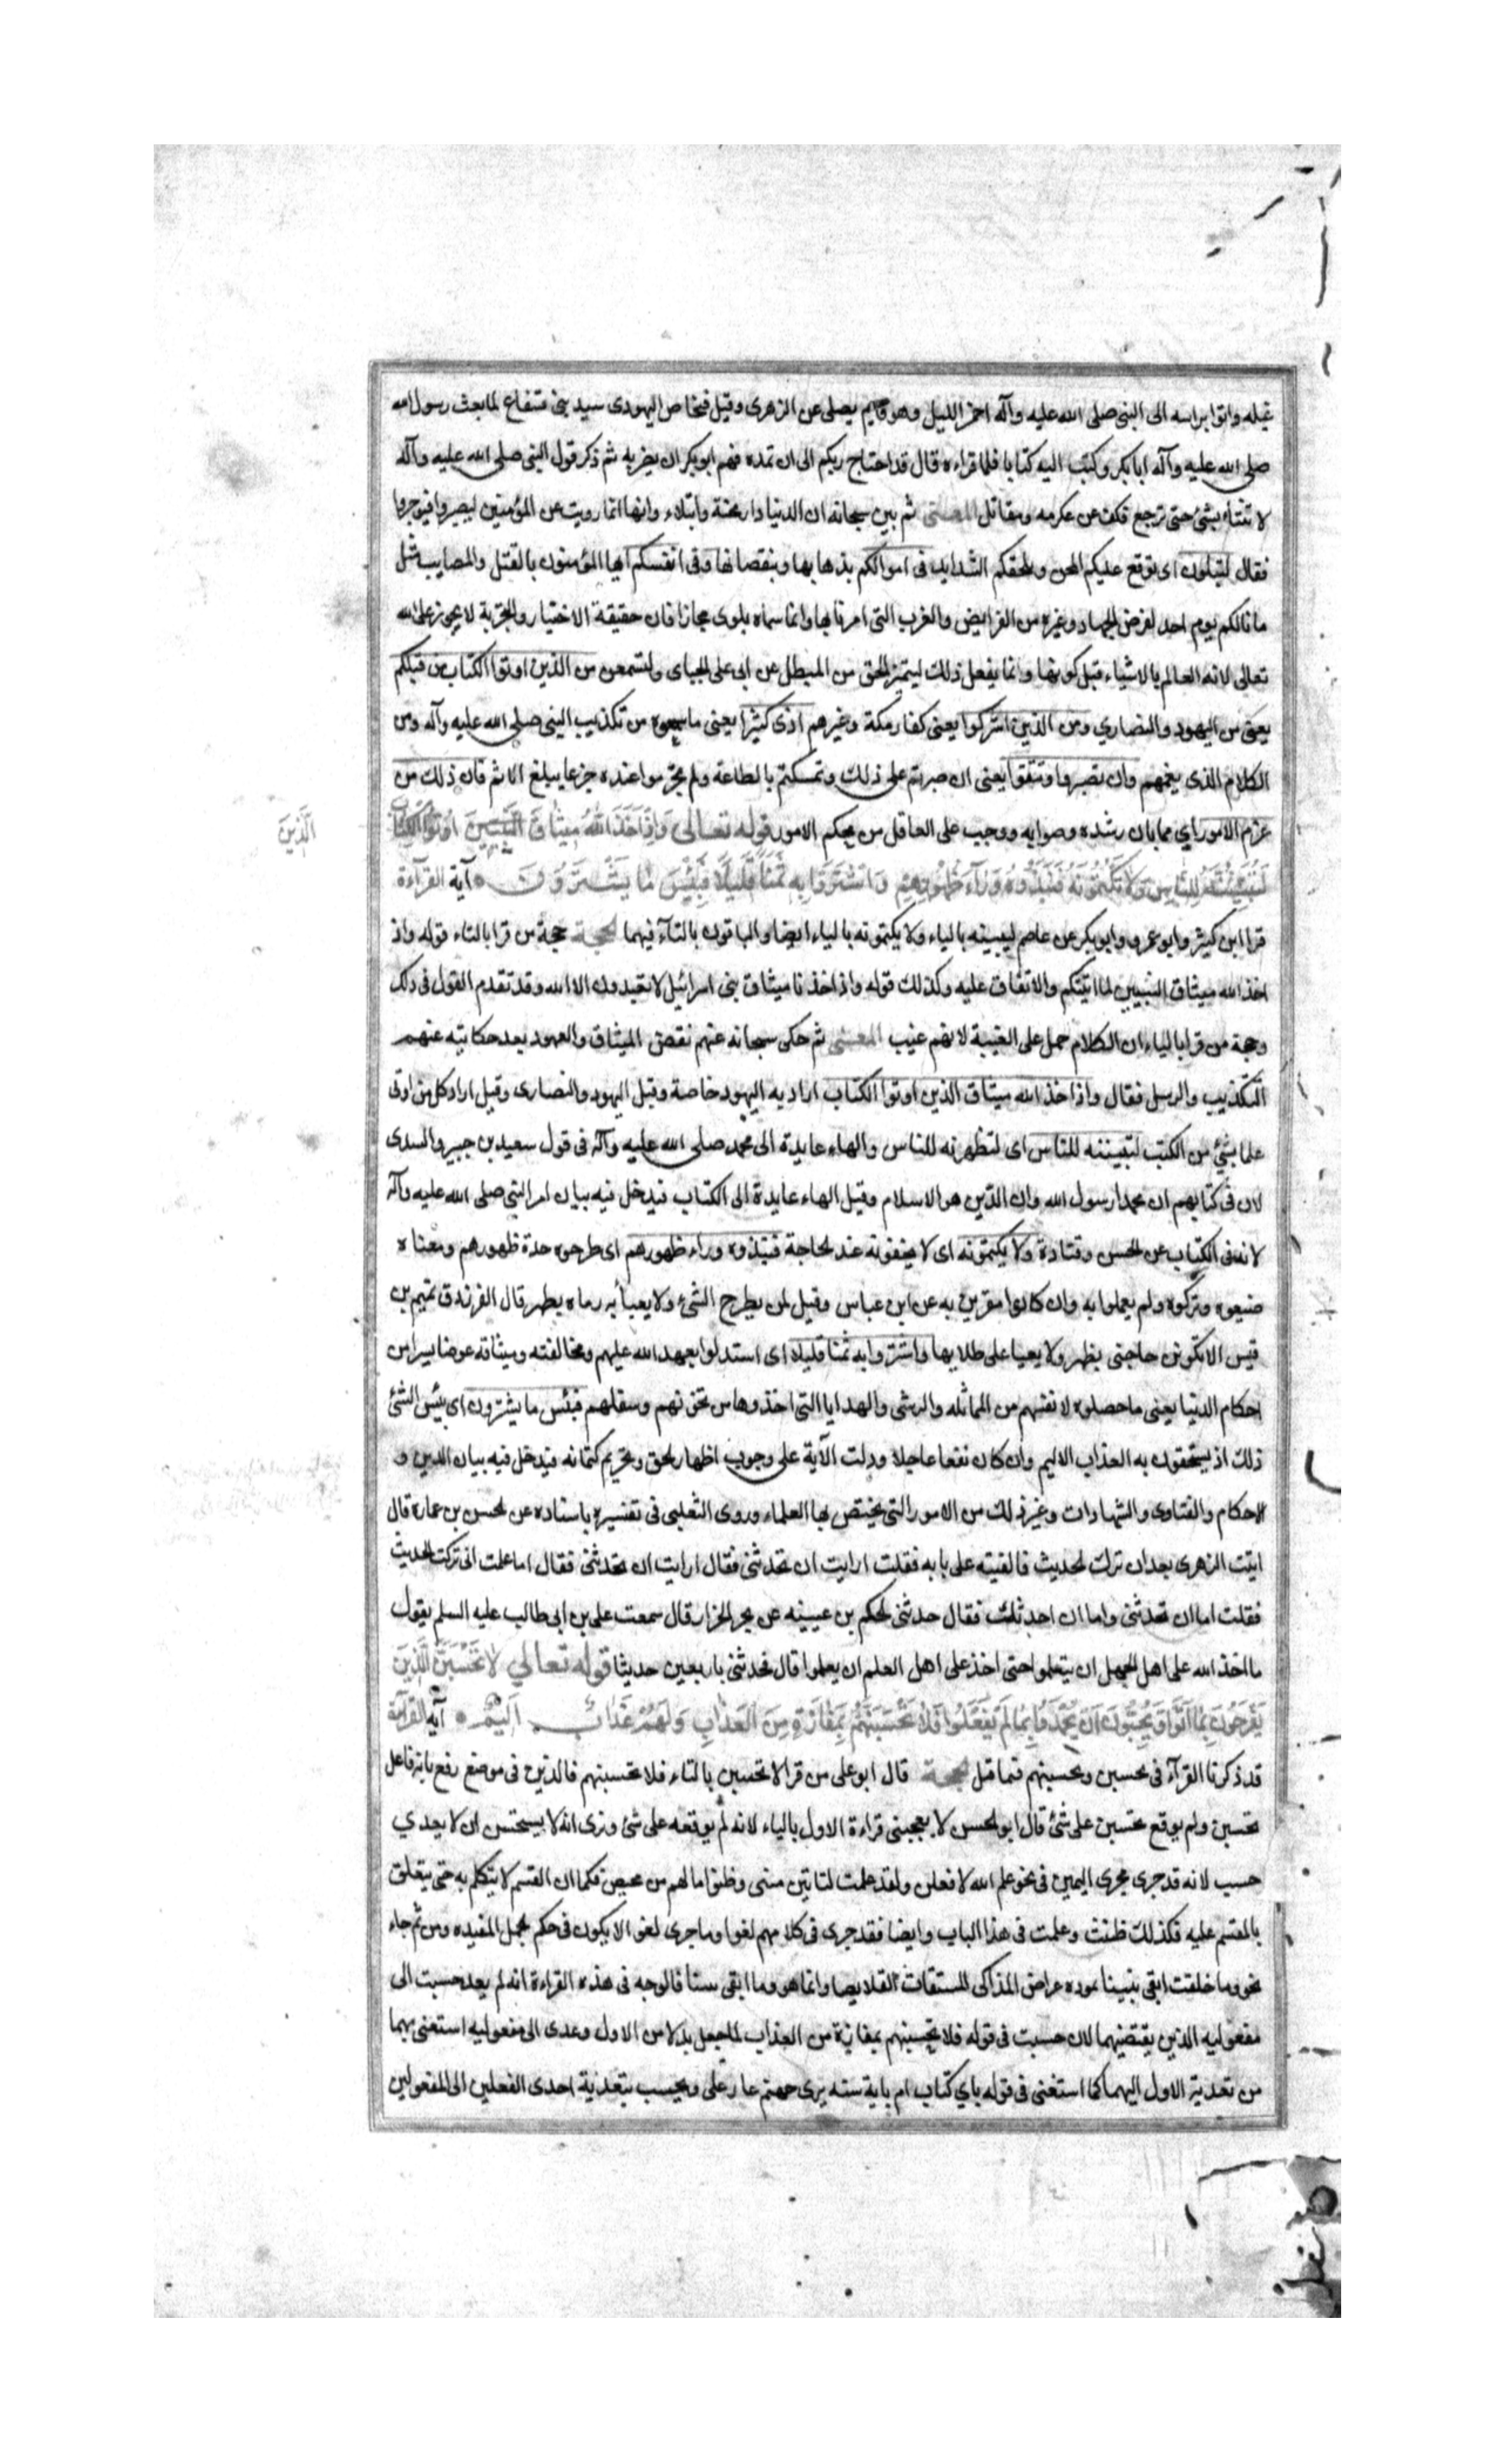 غيله واتوا براسه الى النبى صلى الله عليه وآله اخر الليل وهو قايم يصلى عن الزهرى وقيل فنخاص اليهودى سيد بنى قنقاع لما بعث رسول الله
صلى الله عليه وآله ابا بكر وكتب اليه كتابا فلما قراءه قال قد احتاج ربكم الى ان نمده فهم ابو بكر ان يضربه ثم ذكر قول النبى صلى الله عليه وآله
لا تفتات بشئ حتى ترجع فكف عن عكرمه ومقاتل المعنى ثم بين سبحانه ان الدنيا دار محنة وابتلاء وانها انما رويت عن المؤمنين ليصبروا فيوجروا
فقال لتبلون اى توقع عليكم المحن وتلحقكم الشدايد فى اموالكم بذهابها ونقصانها وفى انفسكم ايها المؤمنون بالقتل والمصايب مثل
ما نالكم يوم احد لفرض الجهاد وغيره من الفرايض والقرب التى امرنا بها وانما سماه بلوى مجازا فان حقيقة الاختيار والتجربة لا يجوز على الله
تعالى لانه العالم بالاشياء قبل كونها وانما يفعل ذلك ليتميز المحق من المبطل عن ابى على الجباى ولتسمعن من الذين اوتوا الكتاب من قبلكم
يعنى من اليهود والنصاري ومن الذين اشركوا يعنى كفار مكة وغيرهم اذى كثيرا يعنى ما سمعوه من تكذيب النبى صلى الله عليه وآله ومن
الكلام الذى يغمهم وان تصبروا وتتقوا يعنى ان صبرتم على ذلك وتمسكتم بالطاعة ولم تجزعوا عنده جزعا يبلغ الاثم فان ذلك من
عزم الامور اي مما بان رشده وصوابه ووجب على العاقل من محكم الامور قوله تعالى وَاِذْ اَخَذَ اللّٰهُ مِيثَاقَ النَّبِيِّينَ اُوتُوا الْكِتَابَ
الَّذِينَ
لَتُبَيِّنُنَّهُ لِلنَّاسِ وَلَا تَكْتُمُونَهُ فَنَبَذُوهُ وَرَآءَ ظُهُورِهِمْ وَاشْتَرَوْا بِهِ ثَمَنًا قَلِيلًا فَبِئْسَ مَا يَشْتَرُونَ آية القرآءة
قرا ابن كثير وابو عمرو وابو بكر عن عاصم ليبيننه بالياء ولا يكتمونه بالياء ايضا والباقون بالتآء فيهما الحجة حجة من قرا بالتاء قوله واذ
اخذ الله ميثاق النبيين لما اتيتكم والاتفاق عليه وكذلك قوله واذ اخذنا ميثاق بنى اسرائيل لا تعبدون الا الله وقد تقدم القول فى ذلك
وحجة من قرا بالياء ان الكلام حمل على الغيبة لانهم غيب المعنى ثم حكى سبحانه عنهم نقض الميثاق والعهود بعد حكايته عنهم
التكذيب والرسل فقال واذ اخذ الله ميثاق الذين اوتوا الكتاب اراد به اليهود خاصة وقيل اليهود والنصارى وقيل اراد كل من اوتى
علما بشئ من الكتب لتبيننه للناس اى لتظهرنه للناس والهاء عايدة الى محمد صلى الله عليه وآله فى قول سعيد بن جبير والسدى
لان فى كتابهم ان محمدا رسول الله وان الدين هو الاسلام وقيل الهاء عايدة الى الكتاب فيدخل فيه بيان امر النبي صلى الله عليه وآله
لانه فى الكتاب عن الحسن وقتادة ولا يكتمونه اى لا يخفونه عند الحاجة فنبذوه وراء ظهورهم اى طرحوه ظهورهم ومعناه
ضيعوه وتركوه ولم يعملوا به وان كانوا مقرين به عن ابن عباس وقيل لمن يطرح الشئ ولا يعبأ به رماه بظهر قال الفرزدق تميم بن
قيس الا تكونن حاجتى بظهر ولا يعيا على طلابها واشتروا به ثمنا قليلا اى استدلوا بعهد الله عليهم ومخالفته وميثاقه عوضا يسيرا من
احكام الدنيا يعنى ما حصلوه لانفسهم من الماثله والرشى والهدايا التى اخذوها من وسفلهم فبئس ما يشترون اى بئس الشئ
ذلك اذ يستحقون به العذاب الاليم وان كان نفعا عاجلا ودلت الآية على وجوب اظهار الحق وتحريم كتمانه فيدخل فيه بيان الدين و
الاحكام والفتاوى والشهادات وغير ذلك من الامور التى يختص بها العلماء وروى الثعلبى فى تفسيره باسناده عن الحسن بن عمارة قال
اتيت الزهرى بعد ان ترك الحديث فالفيته على بابه فقلت ارايت ان تحدثنى فقال ارايت ان تحدثنى فقال اما علمت انى تركت الحديث
فقلت اما ان تحدثنى واما ان احدثك فقال حدثنى الحكم بن عيينه عن الخزار قال سمعت على بن ابى طالب عليه السلم يقول
ما اخذ الله على اهل الجهل ان يتعلموا حتى اخذ على اهل العلم ان يعلموا قال فحدثنى باربعين حديثا قوله تعالي لَا تَحْسَبَنَّ الَّذِينَ
يَفْرَحُونَ بِمَا اَتَوْا وَيُحِبُّونَ اَنْ يُحْمَدُوا بِمَا لَمْ يَفْعَلُوا فَلَا تَحْسَبَنَّهُمْ بِمَفَازَةٍ مِنَ الْعَذَابِ وَلَهُمْ عَذَابٌ اَلِيمٌ آية القرآءة
قد ذكرنا القرآء فى تحسبن وتحسبنهم فيما قبل الحجة قال ابو على من قرا لا تحسبن بالتاء فلا تحسبنهم فالذين فى موضع رفع بانه فاعل
تحسبن ولم يوقع تحسبن على شئ قال ابو الحسن لا يعجبنى قراءة الاول بالياء لانه لم يوقعه على شئ ونرى انه لا يستحسن ان لا يعدي
حسب لانه قد جرى مجرى اليمين فى نحو علم الله لافعلن ولقد علمت لتاتين منتى وظنوا ما لهم من محيص فكما ان القسم لا يتكلم به حتى يتعلق
بالمقسم عليه فكذلك ظننت وعلمت فى هذا الباب وايضا فقد جرى فى كلامهم لغوا وما جرى لغو الا يكون فى حكم الجمل المفيده ومن ثم جاء
نحو وما خلقت ابقى عراض المذاكى القلايصا وانما هو وما ابقى فالوجه فى هذه القراءة انه لم يعد حسبت الى
مفعوليه الذين يقتضيهما لان حسبت فى قوله فلا تحسبنهم بمفازة من العذاب لما جعل بدلا من الاول وعدى الى مفعوليه استغنى بهما
من تعدية الاول اليهما كما استغنى فى قوله باي كتاب ام باية سنه يرى حبهم عار على ويحسب بتعدية احدى الفعلين الى المفعولين